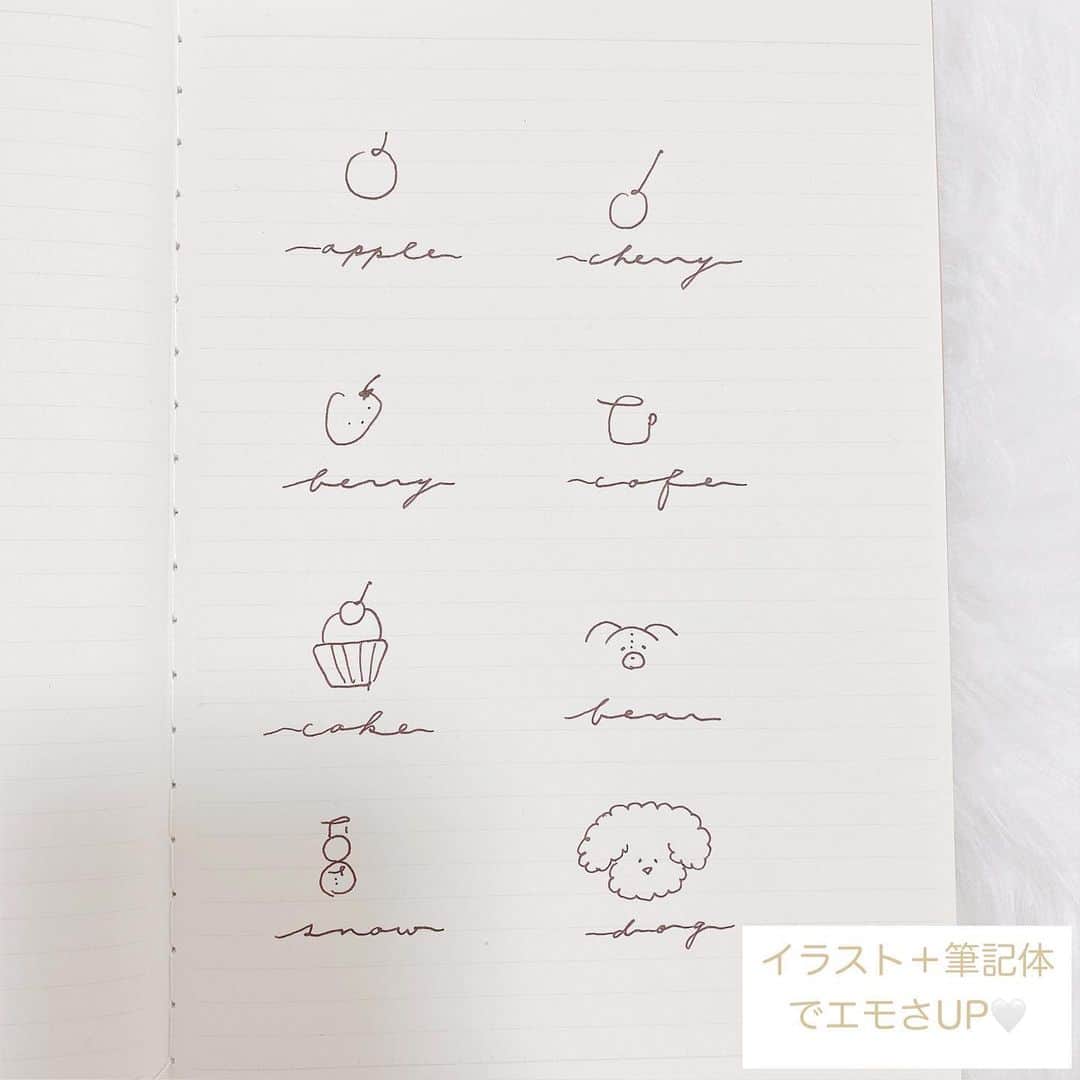 apple
cherry
berry
cafe
cake
bear
snow
dog
イラスト＋筆記体
でエモさUP🤍